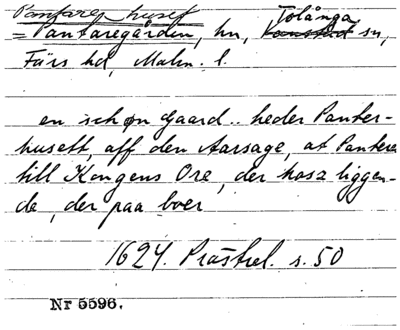 Panfarep husef
Tolånga
= Panfaregården, hn, Konstad sn,
Färs hd, Malm. l.
en schøn gaard.. heder Panker-
husett, aff den Aarsage, at Pankere
till Kongens Ore, der hosz liggen-
de, der paa boer
1624. Prästrel. s. 50
Nr 5596.